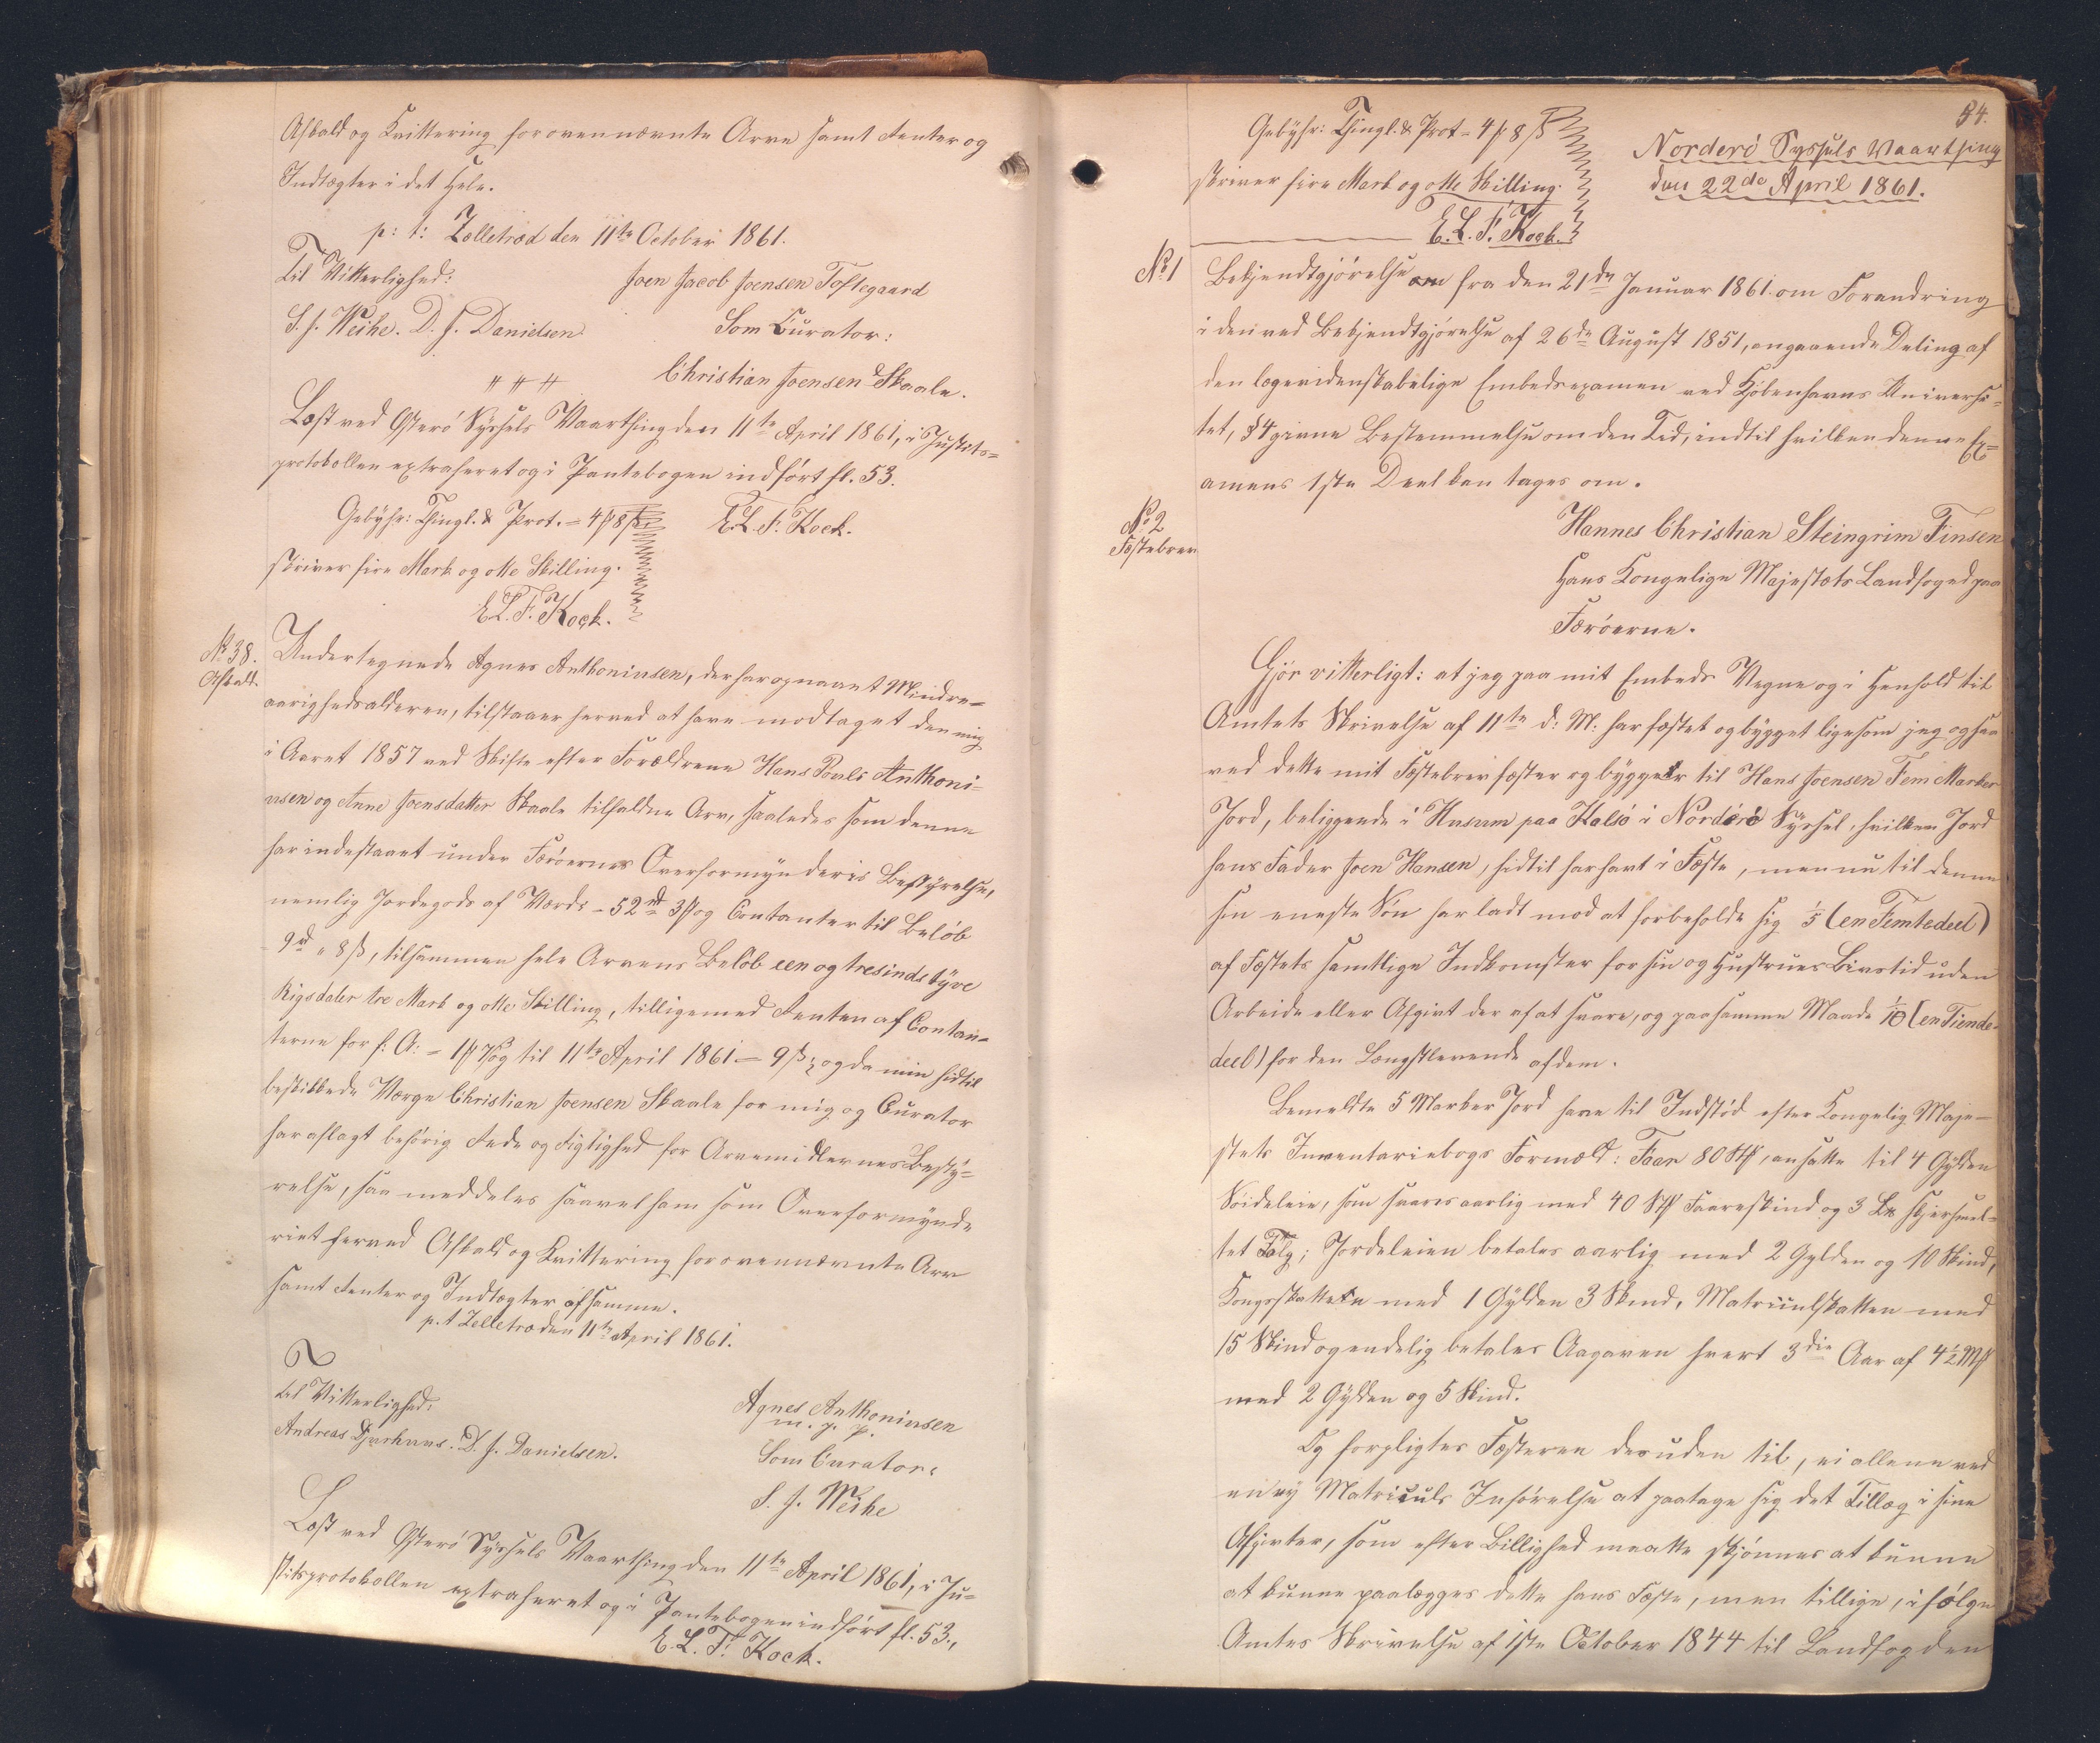 Afkald og Kvittering for ovennævnte Arve samt Renter og
Indtægter i det Hele.
p: t: Zelletræd den 11te October 1861.
Til Vitterlighed:
Joen Jacob Joensen Toftegaard
S. J. Weihe. D. J. Danielsen
Som Curator:
Christian Joensen Skaale.
Læst ved Østerø Syssels Vaarthing den 11te April 1861, i Justits=
protokollen extraheret og i Pantebogen indført fl. 53.
Gebyhr: Thingl. & Prot. = 4 ₰ 8 ß
E. L. F. Kock.
skriver fire Mark og otte Skilling.
E. L. F. Kock.
No 38.
Afkald.
Undertegnede Agnes Anthoniusen, der har opnaaet Mindre=
aarighedsalderen, tilstaaer herved at have modtaget den mig
i Aaret 1857 ved Skifte efter Forældrene Hans Pouls Anthoni=
usen og Anne Joensdatter Skaale tilfaldne Arv, saaledes som denne
har indestaaet under Færøernes Overformynderis Bestyrelse,
nemlig Jordegods af Værdi - 52 rd 3 ₰ og Contanter til Beløb
9 rd " 8 ß, tilsammen hele Arvens Beløb een og tresindstyve
Rigsdaler tre Mark og otte Skilling, tilligemed Renten af Contan=
terne for f: A: = 1 ₰ 7 ß og til 11te April 1861 = 9 ß; og da min hidtil
beskikkede Værge Christian Joensen Skaale for mig og Curator
har aflagt behørig Rede og Rigtighed for Arvemidlernes Besty=
relse, saa meddeles saavel ham som Overformynde
riet herved Afkald og Kvittering for ovennævnte Arv
samt Renter og Indtægter af samme.
p. t Zelletræ den 11te April 1861.
Til Vitterlighed:
Andreas Djurhuus. D. J. Danielsen.
Agnes Anthoniusen
m. p. p.
Som Curator:
S. J. Weihe
Læst ved Østerø Syssels Vaarthing den 11te April 1861, i Ju=
stitsprotokollen extraheret og i Pantebogen indført fl. 53.,
E. L. F. Kock.
54.
Gebyhr: Thingl. & Prot = 4 ₰ 8 ß
skriver fire Mark og otte Skilling.
E. L. F. Kock.
Norderø Syssels Vaarthing
den 22de April 1861.
No 1
Bekjendtgjørelse om fra den 21de Januar 1861 om Forandring
i den ved Bekjendtgjørelse af 26de August 1851, angaaende Deling af
den lægevidenskabelige Embedsexamen ved Kjøbenhavns Universi=
tet, § 4 givne Bestemmelse om den Tid, indtil hvilken denne Ex=
amens 1ste Deel kan tages om.
No 2
Fæstebrev
Hannes Christian Steingrim Finsen
Hans Kongelige Majestæts Landfoged paa
Færøerne.
Gjør vitterligt: at jeg paa mit Embeds Vegne og i Henhold til
Amtets Skrivelse af 11te d: M: har fæstet og bygget ligesom jeg og saa
ved dette mit Fæstebrev fæster og bygger til Hans Joensen Fem Marker
Jord, beliggende i Husum paa Kalsø i Norderø Syssel, hvilken Jord
hans Fader Joen Hansen, hidtil har havt i Fæste, men nu til denne
sin eneste Søn har ladt mod at forbeholde sig 1/5 (en Femtedeel)
af Fæstets samtlige Indkomster for sin og Hustrues Livstid uden
Arbeide eller Afgivt deraf at svare, og paa samme Maade 1/10 (en Tiende=
deel) for den Længstlevende af dem.
Bemeldte 5 Marker Jord have til Indstød efter Kongelig Maje=
stets Inventariebogs Formeld: Faar 80 Stk, ansatte til 4 Gylden
Soideleie, som svares aarlig med 40 Stk Faareskind og 3 L℔ skjersmel=
tet Talg; Jordeleien betales aarlig med 2 Gylden og 10 Skind,
Kongsskatten med 1 Gylden 3 Skind, Matriculskatten med
15 Skind og endelig betales Aagaven hvert 3die Aar af 4 1/2 Mk
med 2 Gylden og 5 Skind.
Og forpligtes Fæsteren desuden til, ei allene ved
en ny Matriculs Indførelse at paatage sig det Tillæg i sine
Afgivter, som efter Billighed maatte skjønnes at kunne
at kunne paalægges dette hans Fæste, men tillige, ifølge
Amtes Skrivelse af 1ste October 1844 til Landfogden